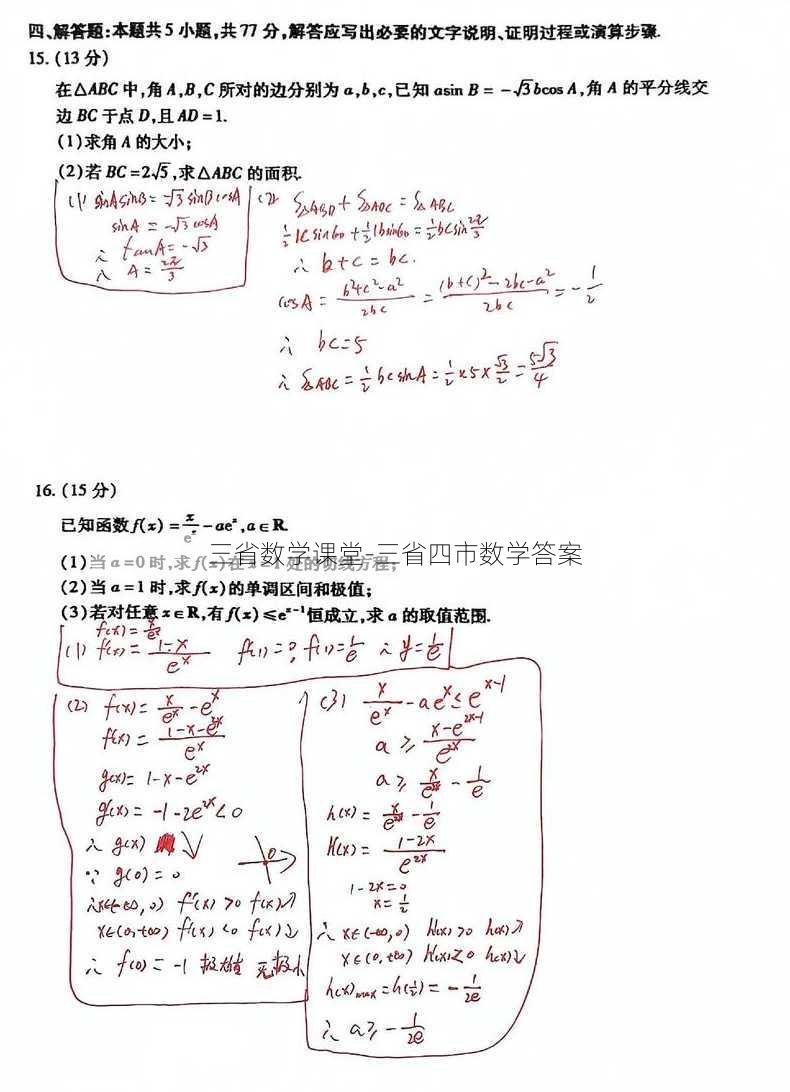 四、解答题:本题共5小题,共77分,解答应写出必要的文字说明、证明过程或演算步骤.
15.(13分)
在△ABC中,角A,B,C所对的边分别为a,b,c,已知asin B = -√3bcos A,角A的平分线交
边BC于点D,且AD=1.
(1)求角A的大小;
(2)若BC=2√5,求△ABC的面积.
(1) sinAsinB=-√3 sinBcosA
sinA = -√3 cosA
∴ tanA=-√3
∴ A = 2π/3
(2) S△ABD + S△ADC = S△ABC
1/2 1c sin60 + 1/2 1b sin60 = 1/2 bc sin 2π/3
∴ b+c = bc.
cosA = (b²+c²-a²)/2bc = ((b+c)²-2bc-a²)/2bc = -1/2
∴ bc=5
∴ S△ABC = 1/2 bc sinA = 1/2 ×5× √3/2 = 5√3/4
16.(15分)
已知函数f(x)=x/eˣ-aeˣ,a∈R.
三省数学课堂-三省四市数学答案
(1)当a=0时,求f(x)在x=1处的切线方程;
(2)当a=1时,求f(x)的单调区间和极值;
(3)若对任意x∈R,有f(x)≤eˣ⁻¹恒成立,求a的取值范围.
f(x)=x/eˣ
(1) f'(x)= (1-x)/eˣ f'(1)=0, f(1)=1/e ∴ y=1/e
(2) f(x)= x/eˣ -eˣ
f'(x)= (1-x-e²ˣ)/eˣ
g(x)= 1-x-e²ˣ
g'(x)= -1-2e²ˣ<0
∴ g(x) ↘
∵ g(0)=0
0
∴x∈(-∞,0) f'(x)>0 f(x)↗
x∈(0,+∞) f'(x)<0 f(x)↘
∴ f(0)=-1 极大值 无极小
(3) x/eˣ -aeˣ≤eˣ⁻¹
a ≥ (x-e²ˣ⁻¹)/e²ˣ
a≥ x/e²ˣ - 1/e
h(x)= x/e²ˣ - 1/e
h'(x)= (1-2x)/e²ˣ
1-2x=0
x=1/2
∴ x∈(-∞,0) h'(x)>0 h(x)↗
x∈(0,+∞) h'(x)<0 h(x)↘
h(x)max=h(1/2)= -1/2e
∴ a≥ -1/2e